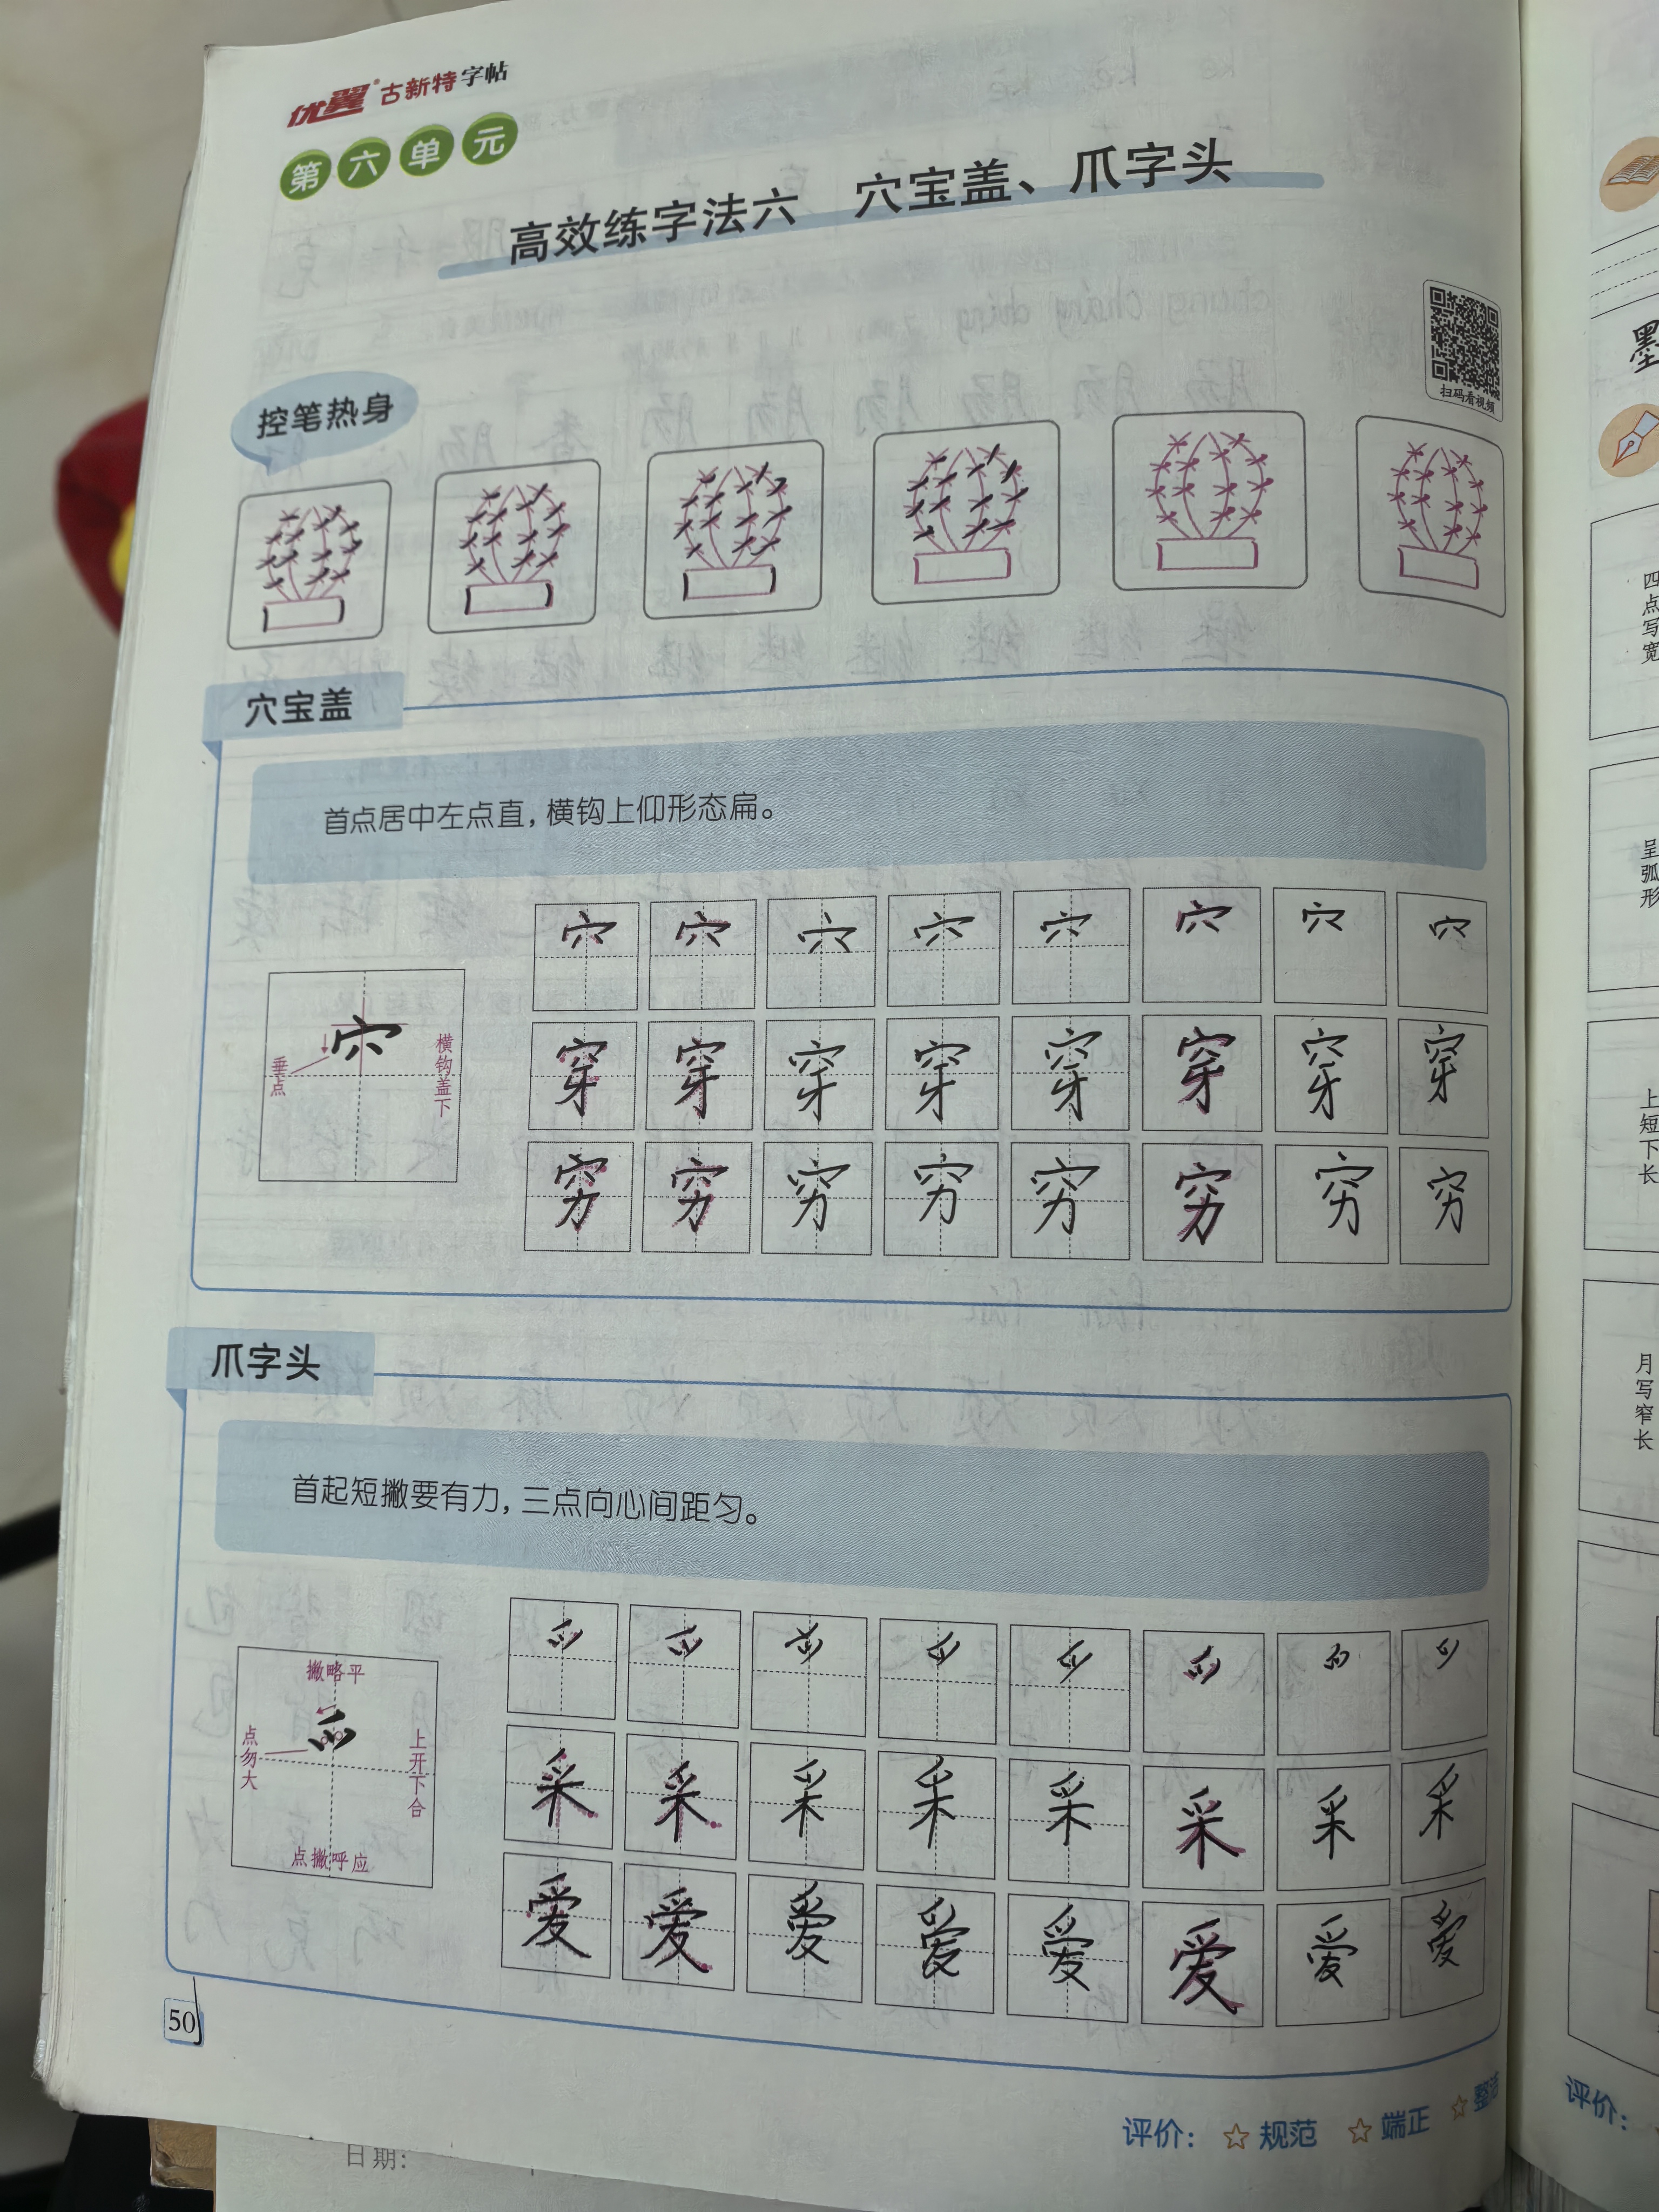 优翼 古新特字帖
第六单元
高效练字法六 穴宝盖、爪字头
扫码看视频
控笔热身
穴宝盖
首点居中左点直，横钩上仰形态扁。
垂点
横钩盖下
穿 穿 穿 穿 穿 穿 穿 穿
穷 穷 穷 穷 穷 穷 穷 穷
爪字头
首起短撇要有力，三点向心间距匀。
撇略平
点勿大
上开下合
点撇呼应
采 采 采 采 采 采 采 采
爱 爱 爱 爱 爱 爱 爱 爱
50
评价： ☆ 规范 ☆ 端正 ☆ 整洁
日期：
墨
四点写宽
呈弧形
上短下长
月写窄长
评价：